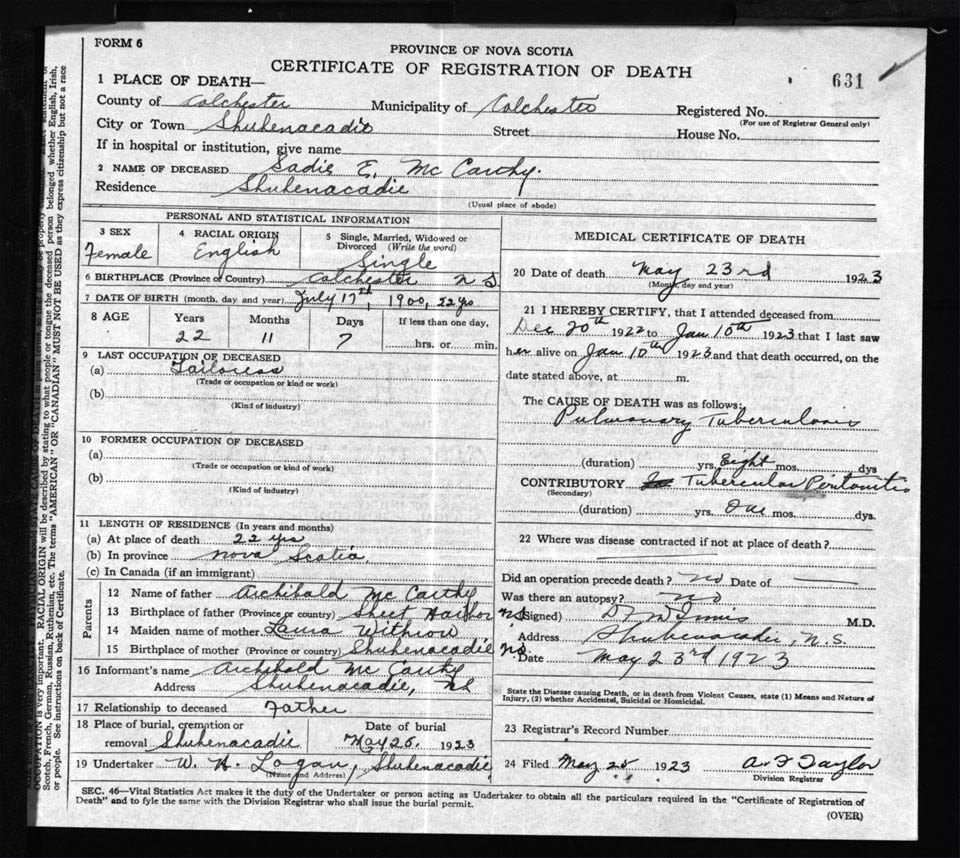 FORM 6
PROVINCE OF NOVA SCOTIA
CERTIFICATE OF REGISTRATION OF DEATH
631
1 PLACE OF DEATH—
County of Colchester Municipality of Colchester Registered No.
(For use of Registrar General only)
City or Town Shubenacadie Street House No.
If in hospital or institution, give name
2 NAME OF DECEASED Sadie E. McCarthy.
Residence Shubenacadie
(Usual place of abode)
PERSONAL AND STATISTICAL INFORMATION
3 SEX Female
4 RACIAL ORIGIN English
5 Single, Married, Widowed or Divorced (Write the word) Single
6 BIRTHPLACE (Province or Country) Colchester N S
7 DATE OF BIRTH (month, day and year) July 17th, 1900, 22 yrs
8 AGE Years 22 Months 11 Days 7 If less than one day, hrs. or min.
9 LAST OCCUPATION OF DECEASED
(a) Tailoress
(Trade or occupation or kind or work)
(b)
(Kind of industry)
10 FORMER OCCUPATION OF DECEASED
(a)
(Trade or occupation or kind of work)
(b)
(Kind of industry)
11 LENGTH OF RESIDENCE (In years and months)
(a) At place of death 22 yrs
(b) In province Nova Scotia,
(c) In Canada (if an immigrant)
Parents
12 Name of father Archibald McCarthy
13 Birthplace of father (Province or country) Sheet Harbor NS
14 Maiden name of mother Laura Withrow
15 Birthplace of mother (Province or country) Shubenacadie NS
16 Informant's name Archibald McCarthy
Address Shubenacadie, NS
17 Relationship to deceased Father
18 Place of burial, cremation or removal Shubenacadie Date of burial May 25. 1923
19 Undertaker W. H. Logan, Shubenacadie
(Name and Address)
MEDICAL CERTIFICATE OF DEATH
20 Date of death May 23rd 1923
(Month, day and year)
21 I HEREBY CERTIFY, that I attended deceased from
Dec 20th 1922 to Jan 10th 1923 that I last saw
her alive on Jan 10th 1923 and that death occurred, on the
date stated above, at m.
The CAUSE OF DEATH was as follows:
Pulmonary Tuberculosis
(duration) yrs. Eight mos. dys
CONTRIBUTORY Tubercular Peritonitis
(Secondary)
(duration) yrs. One mos. dys.
22 Where was disease contracted if not at place of death?
Did an operation precede death? no Date of —
Was there an autopsy? no
(Signed) M.D.
Address Shubenacadie, N.S.
Date May 23rd 1923
State the Disease causing Death, or in death from Violent Causes, state (1) Means and Nature of
Injury, (2) whether Accidental, Suicidal or Homicidal.
23 Registrar's Record Number
24 Filed May 25 1923 A F Taylor
Division Registrar
SEC. 46—Vital Statistics Act makes it the duty of the Undertaker or person acting as Undertaker to obtain all the particulars required in the "Certificate of Registration of
Death" and to fyle the same with the Division Registrar who shall issue the burial permit.
(OVER)